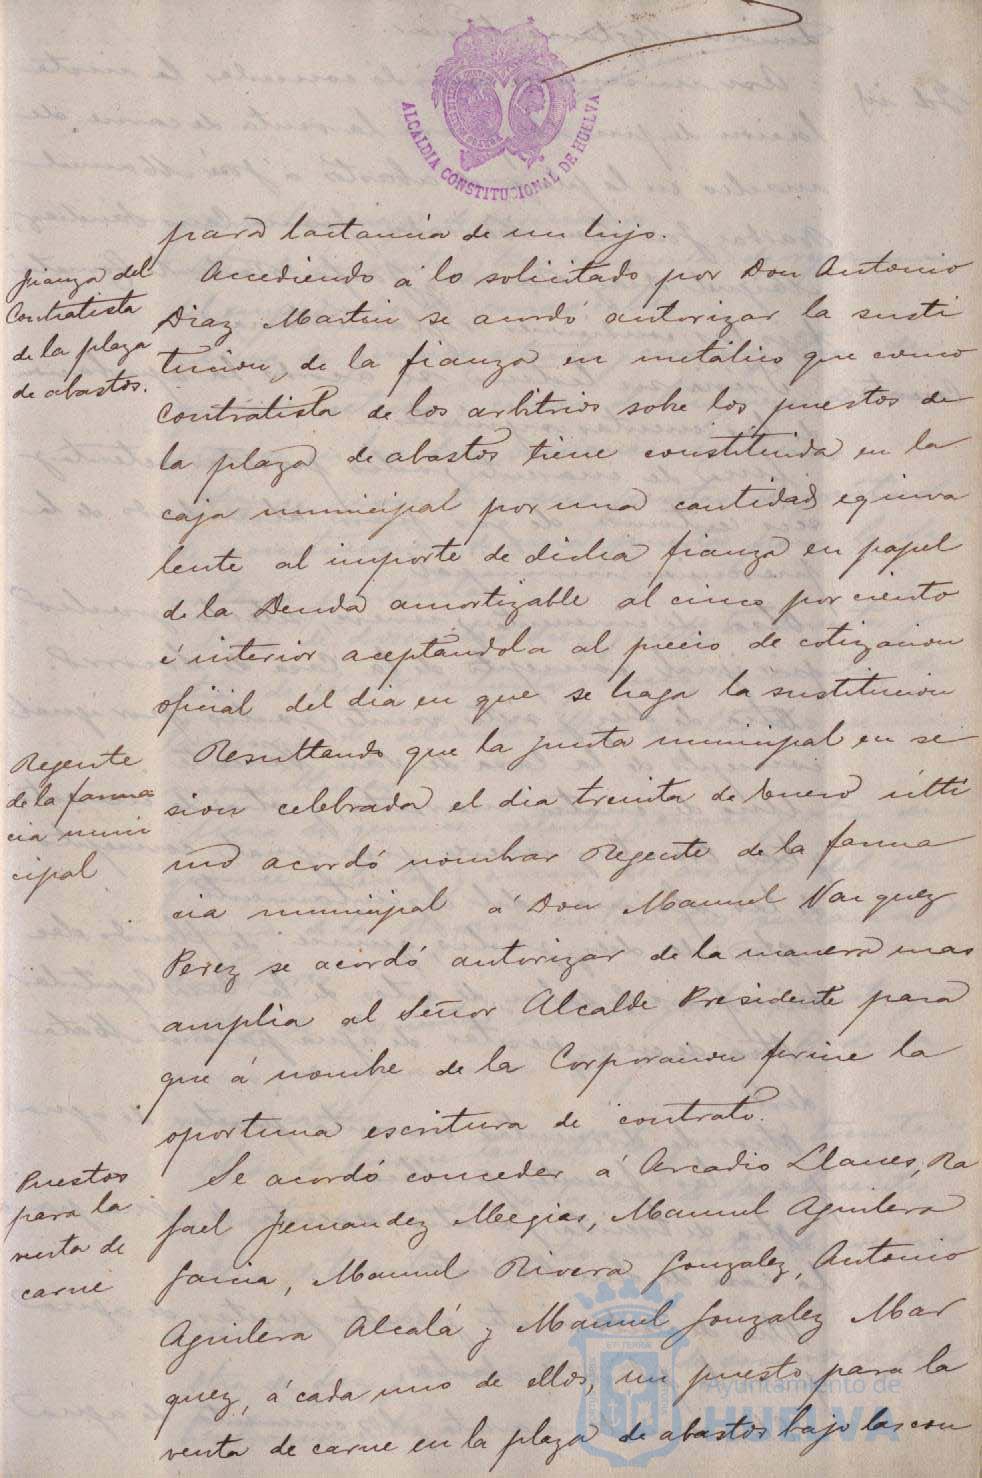 ALCALDIA CONSTITUCIONAL DE HUELVA
para lactancia de un hijo.
fianza del
Contratista
de la plaza
de abastos.
Accediendo á lo solicitado por Don Antonio
Diaz Martin se acordó autorizar la susti
tucion de la fianza en metálico que como
Contratista de los arbitrios sobre los puestos de
la plaza de abastos tiene constituida en la
caja municipal por una cantidad equiva
lente al importe de dicha fianza en papel
de la Deuda amortizable al cinco por ciento
é interior aceptandola al precio de cotizacion
oficial del dia en que se haga la sustitucion
Regente
de la farma
cia muni
cipal
Resultando que la junta municipal en se
sion celebrada el dia treinta de Enero últi
mo acordó nombrar Regente de la farma
cia municipal á Don Manuel Vazquez
Perez se acordó autorizar de la manera mas
amplia al Señor Alcalde Presidente para
que á nombre de la Corporacion firme la
oportuna escritura de contrato.
Puestos
para la
venta de
carne
Se acordó conceder á Arcadio Llanes, Ra
fael Fernandez Megias, Manuel Aguilera
Garcia, Manuel Rivera Gonzalez, Antonio
Aguilera Alcalá y Manuel Gonzalez Mar
quez, á cada uno de ellos, un puesto para la
venta de carne en la plaza de abastos bajo las con
Ayuntamiento de
HUELVA